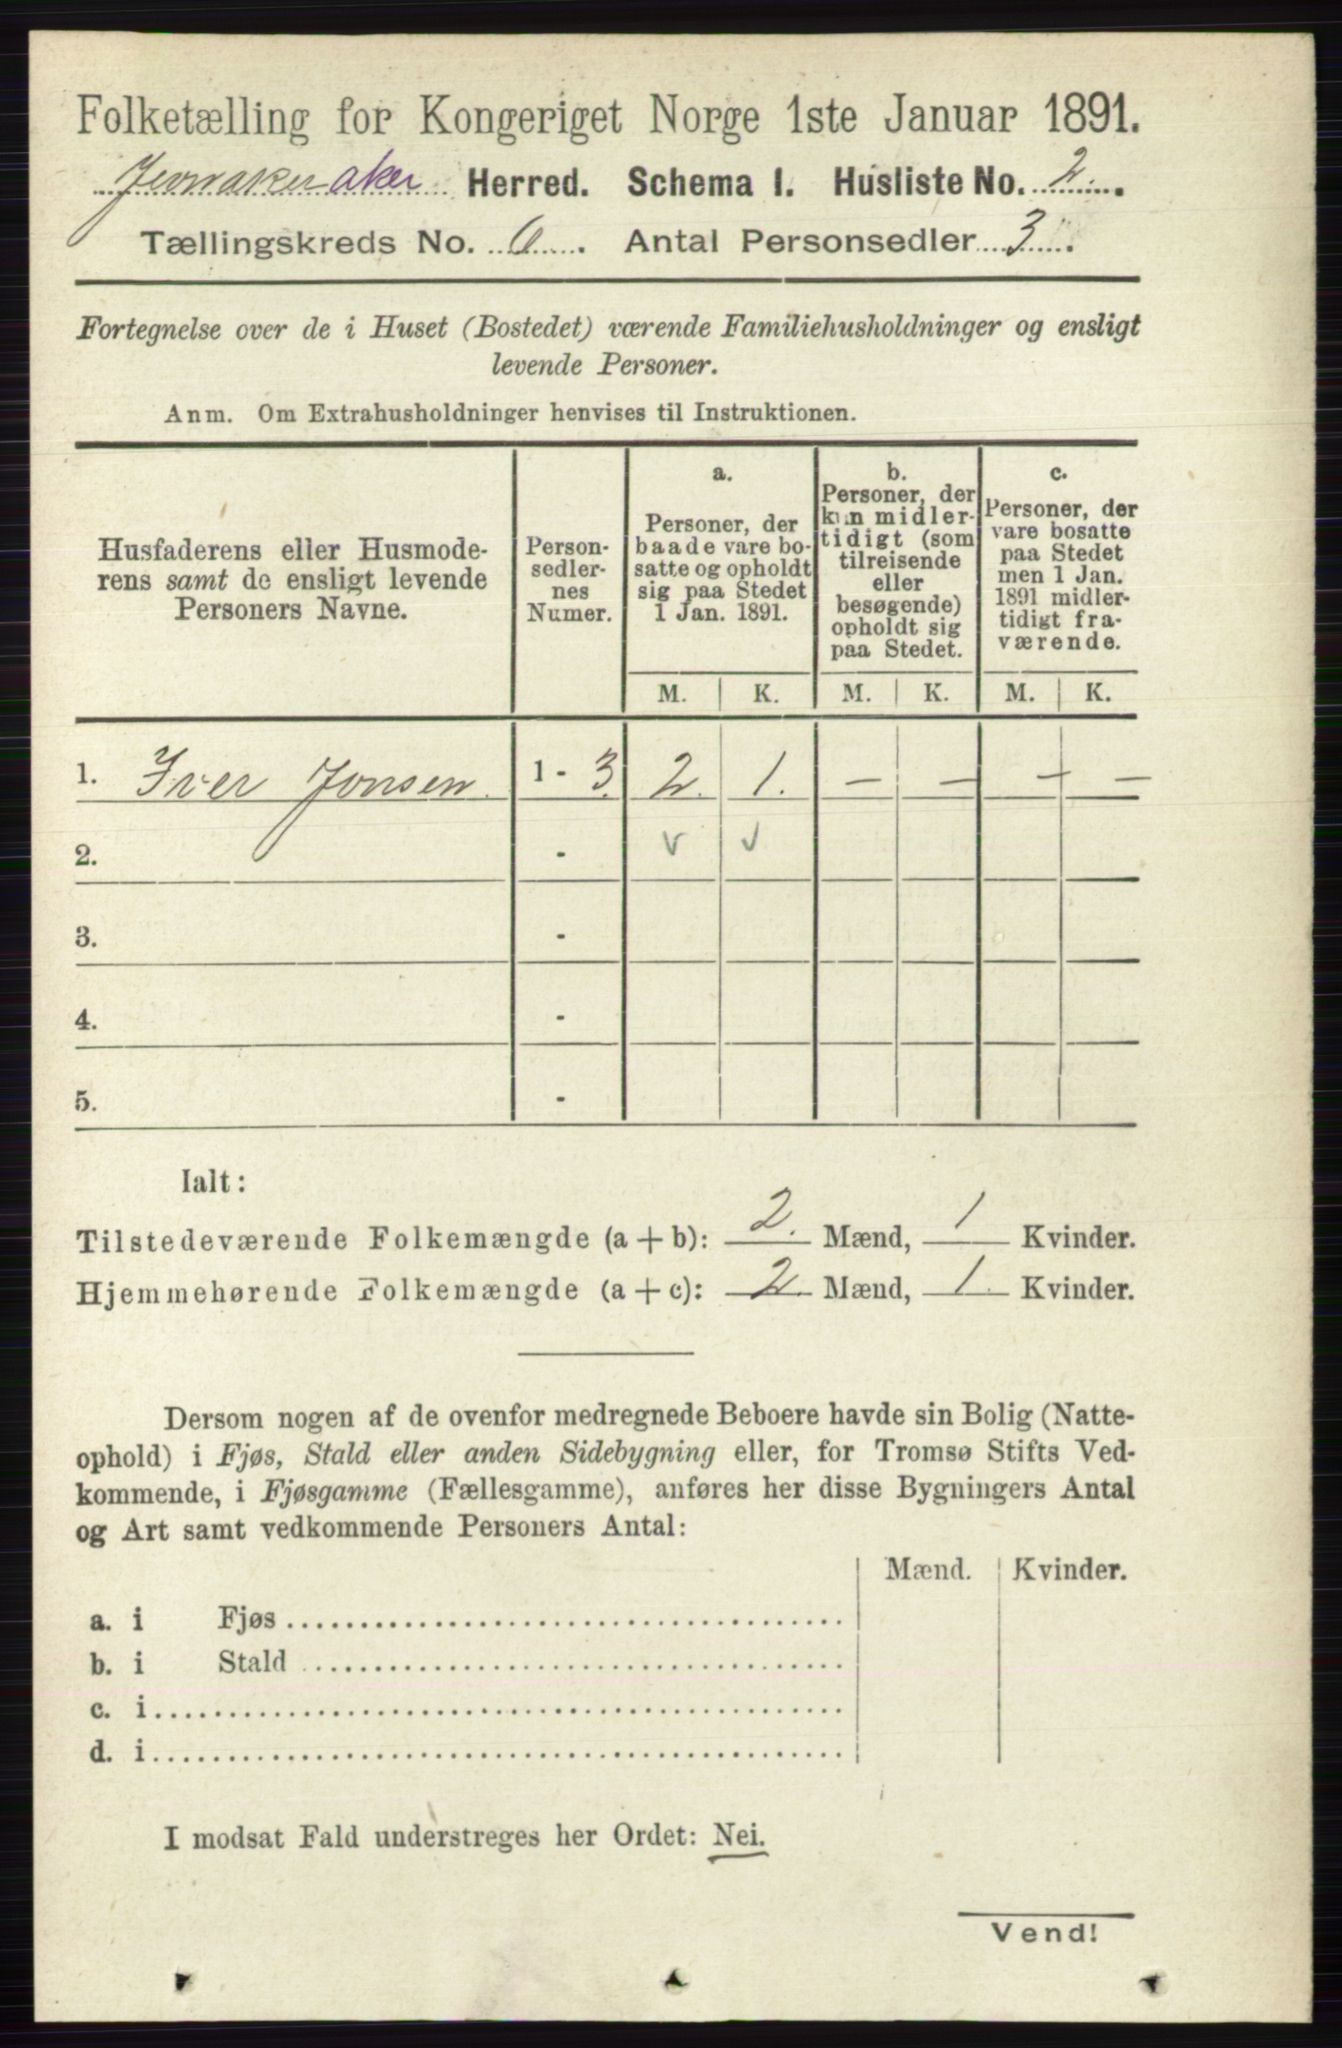 Folketælling for Kongeriget Norge 1ste Januar 1891.
Jevnaker aker Herred. Schema 1. Husliste No. 2.
Tællingskreds No. 6. Antal Personsedler 3.
Fortegnelse over de i Huset (Bostedet) værende Familiehusholdninger og ensligt
levende Personer.
Anm. Om Extrahusholdninger henvises til Instruktionen.
Husfaderens eller Husmode-
rens samt de ensligt levende
Personers Navne.
Person-
sedler-
nes
Numer.
a.
Personer, der
baade vare bo-
satte og opholdt
sig paa Stedet
1 Jan. 1891.
b.
Personer, der
kun midler-
tidigt (som
tilreisende
eller
besøgende)
opholdt sig
paa Stedet.
c.
Personer, der
vare bosatte
paa Stedet
men 1 Jan.
1891 midler-
tidigt fra-
værende.
M. K. M. K. M. K.
1. Iver Jonsen. 1 - 3. 2. 1. — — — —
2. - v v
3. -
4. -
5. -
Ialt:
Tilstedeværende Folkemængde (a + b): 2. Mænd, 1 Kvinder.
Hjemmehørende Folkemængde (a + c): 2. Mænd, 1. Kvinder.
Dersom nogen af de ovenfor medregnede Beboere havde sin Bolig (Natte-
ophold) i Fjøs, Stald eller anden Sidebygning eller, for Tromsø Stifts Ved-
kommende, i Fjøsgamme (Fællesgamme), anføres her disse Bygningers Antal
og Art samt vedkommende Personers Antal:
Mænd. Kvinder.
a. i Fjøs
b. i Stald
c. i
d. i
I modsat Fald understreges her Ordet: Nei.
Vend!